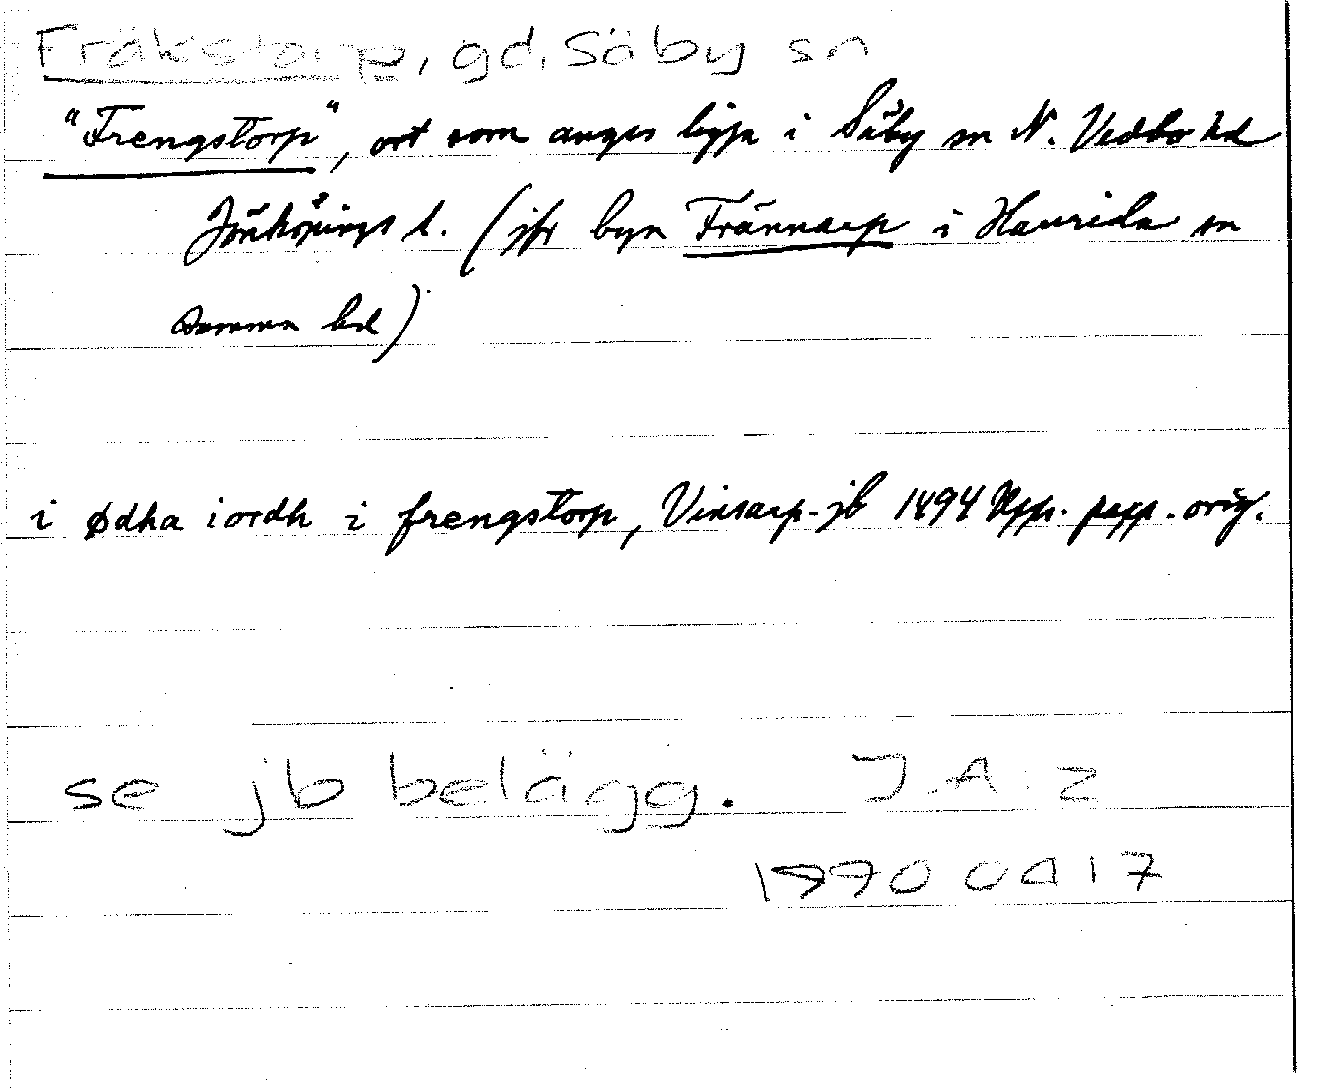 Fräkstorp, gd, Säby sn
"Frengstorp", ort som anges ligga i Säby sn N. Vedbo hd
Jönköpings l. (jfr byn Frännarp i Haurida sn
samma hd)
i ødha iordh i frengstorp, Vinsarp-jb 1494 Upps. papp. orig.
se jb belägg. J.A:z
19900417